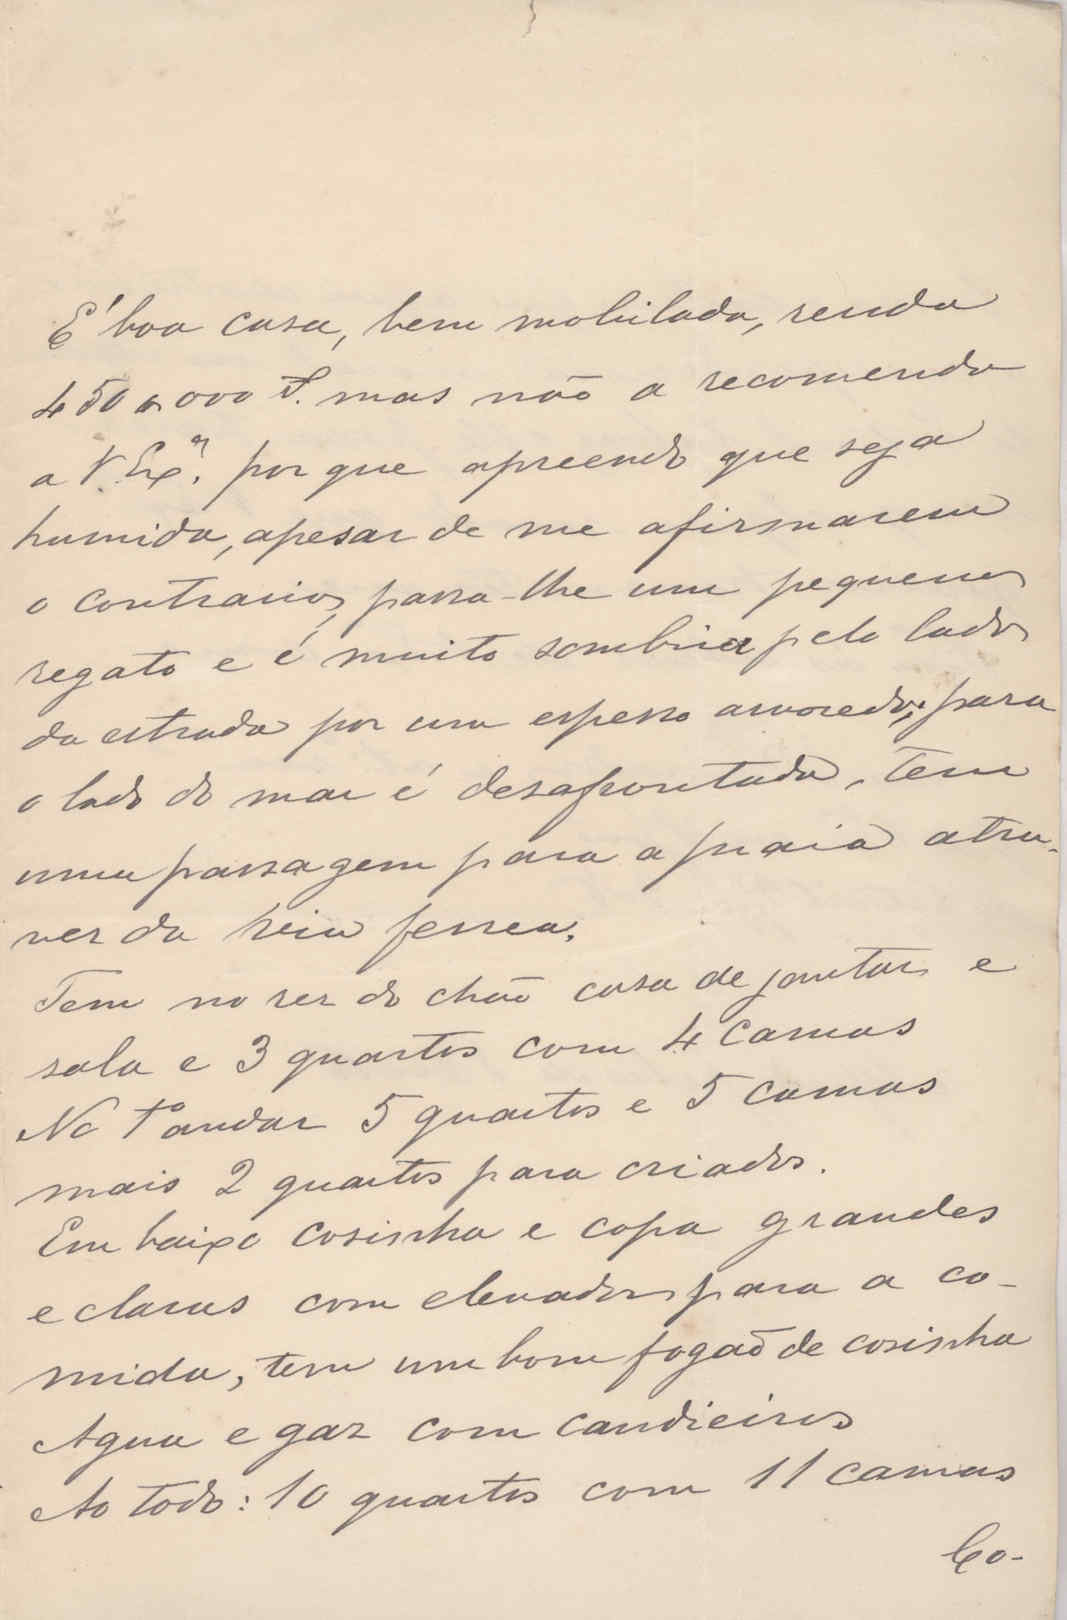 É boa casa, bem mobilada, renda
450$000 rs. mas não a recomendo
a V. Exª. por que apreendo que seja
humida, apesar de me afirmarem
o contrario, passa-lhe um pequeno
regato e é muito sombria pelo lado
da estrada por um espesso arvoredo; para
o lado do mar é desafrontada. Tem
uma passagem para a praia atra-
vez da seia ferrea.
Tem no res do chão casa de jantar e
sala e 3 quartos com 4 camas
No 1º andar 5 quartos e 5 camas
mais 2 quartos para criados.
Em baixo cosinha e copa grandes
e claras com elevador para a co-
mida, tem um bom fogão de cosinha
Agua e gaz com candieiros
Ao todo: 10 quartos com 11 camas
Co-